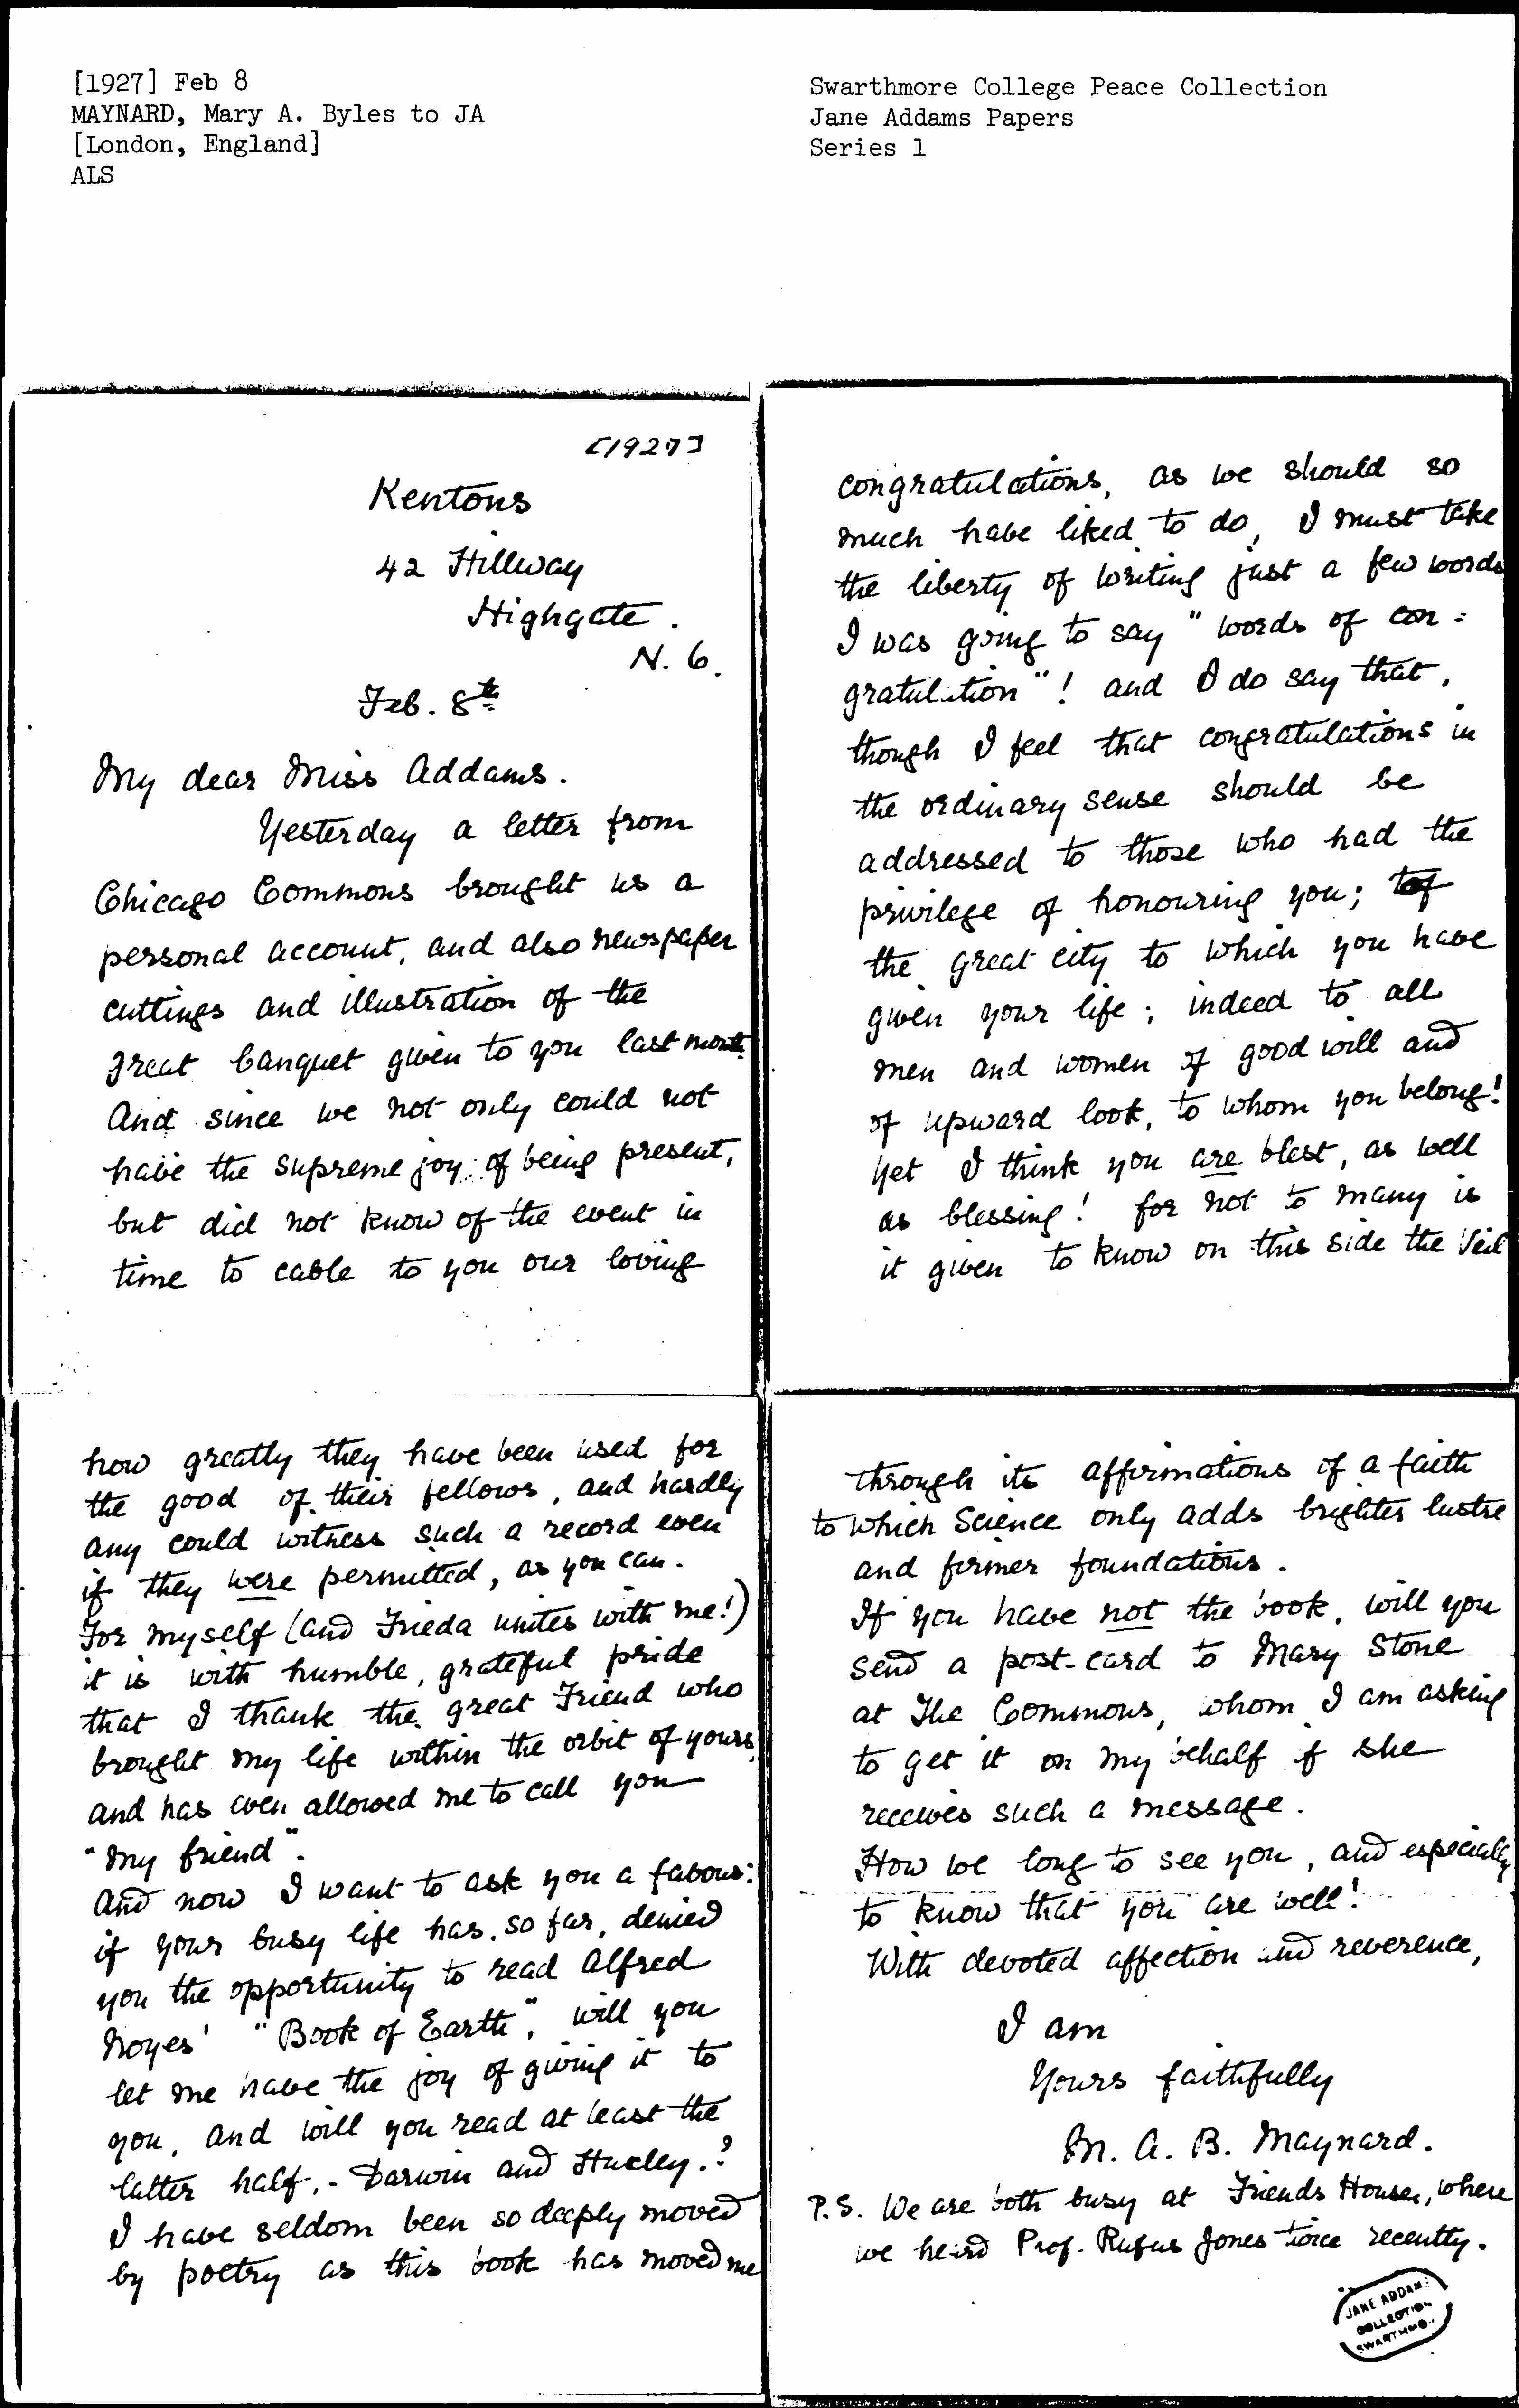 [1927] Feb 8
MAYNARD, Mary A. Byles to JA
[London, England]
ALS
Swarthmore College Peace Collection
Jane Addams Papers
Series 1
[1927]
Kentons
42 Hillway
Highgate.
N. 6.
Feb. 8th
My dear Miss Addams.
Yesterday a letter from
Chicago Commons brought us a
personal account, and also newspaper
cuttings and illustration of the
great banquet given to you last month.
And since we not only could not
have the supreme joy of being present,
but did not know of the event in
time to cable to you our loving
congratulations, as we should so
much have liked to do, I must take
the liberty of writing just a few words
I was going to say "words of con=
gratulation"! and I do say that,
though I feel that congratulations in
the ordinary sense should be
addressed to those who had the
privilege of honouring you; to
the great city to which you have
given your life; indeed to all
men and women of good will and
of upward look, to whom you belong!
Yet I think you are blest, as well
as blessing! for not to many is
it given to know on this side the Veil
how greatly they have been used for
the good of their fellows, and hardly
any could witness such a record even
if they were permitted, as you can.
For myself (and Frieda unites with me!)
it is with humble, grateful pride
that I thank the great Friend who
brought my life within the orbit of yours,
and has even allowed me to call you
"my friend".
And now I want to ask you a favour:
if your busy life has, so far, denied
you the opportunity to read Alfred
Noyes' "Book of Earth", will you
let me have the joy of giving it to
you, and will you read at least the
latter half, - Darwin and Huxley.?
I have seldom been so deeply moved
by poetry as this book has moved me
through its affirmations of a faith
to which Science only adds brighter lustre
and firmer foundations.
If you have not the book, will you
send a post-card to Mary Stone
at The Commons, whom I am asking
to get it on my behalf if she
receives such a message.
How we long to see you, and especially
to know that you are well!
With devoted affection and reverence,
I am
Yours faithfully
M. A. B. Maynard.
P.S. We are both busy at Friends House, where
we heard Prof. Rufus Jones twice recently.
JANE ADDAMS
COLLECTION
SWARTHMO